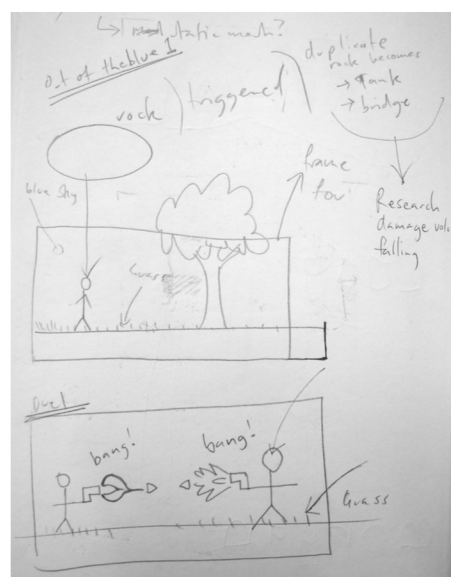 static mesh?
Out of the blue 1
rock
triggered
duplicate
rock becomes
→ Tank
→ bridge
blue sky
frame
for
Research
damage
falling
Grass
Duel
bang!
bang!
Grass